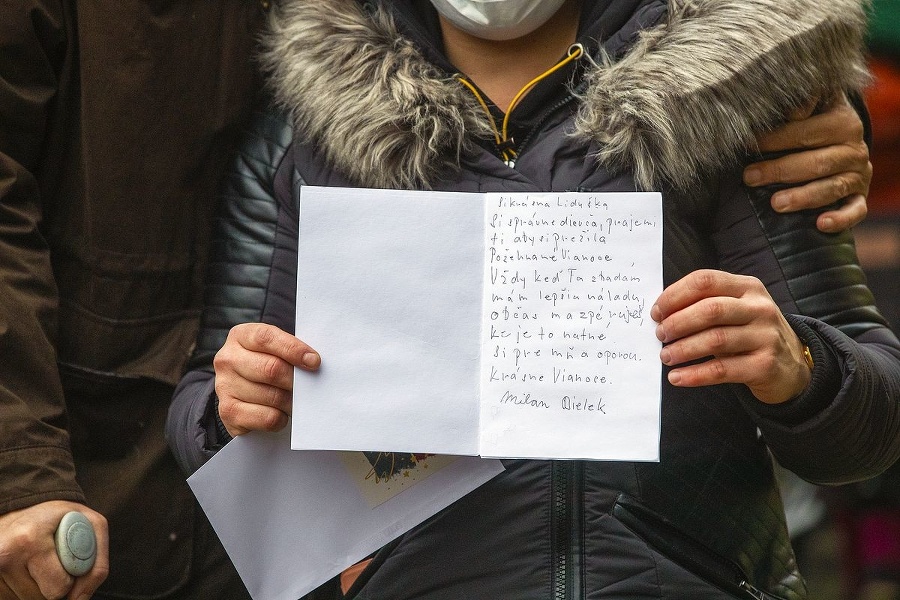 Si krásna Liduška
Si správne dievča, prajem
ti aby si prežila
Požehnané Vianoce
Vždy keď Ťa zbadám
mám lepšiu náladu,
občas ma
keď je to nutné
Si pre mňa oporou.
Krásne Vianoce.
Milan